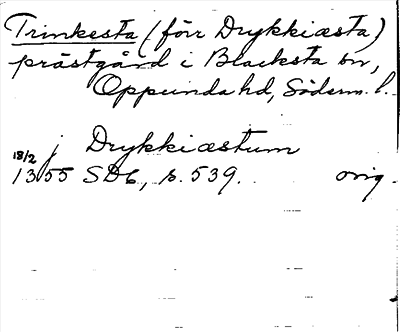 Trinkesta (förr Drykkiæsta)
prästgård i Blacksta sn,
Oppunda hd, Söderm. l.
j Drykkiæstum
18/2
1355 SD6, s. 539. orig.